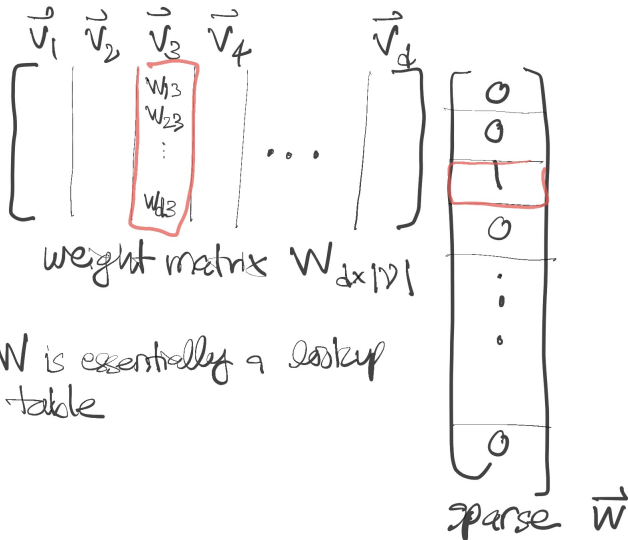 v⃗₁ v⃗₂ v⃗₃ v⃗₄ v⃗d
w₁₃
w₂₃
⋮
wd₃
...
0
0
1
0
⋮
0
weight matrix W d×|V|
W is essentially a lookup
table
sparse w⃗